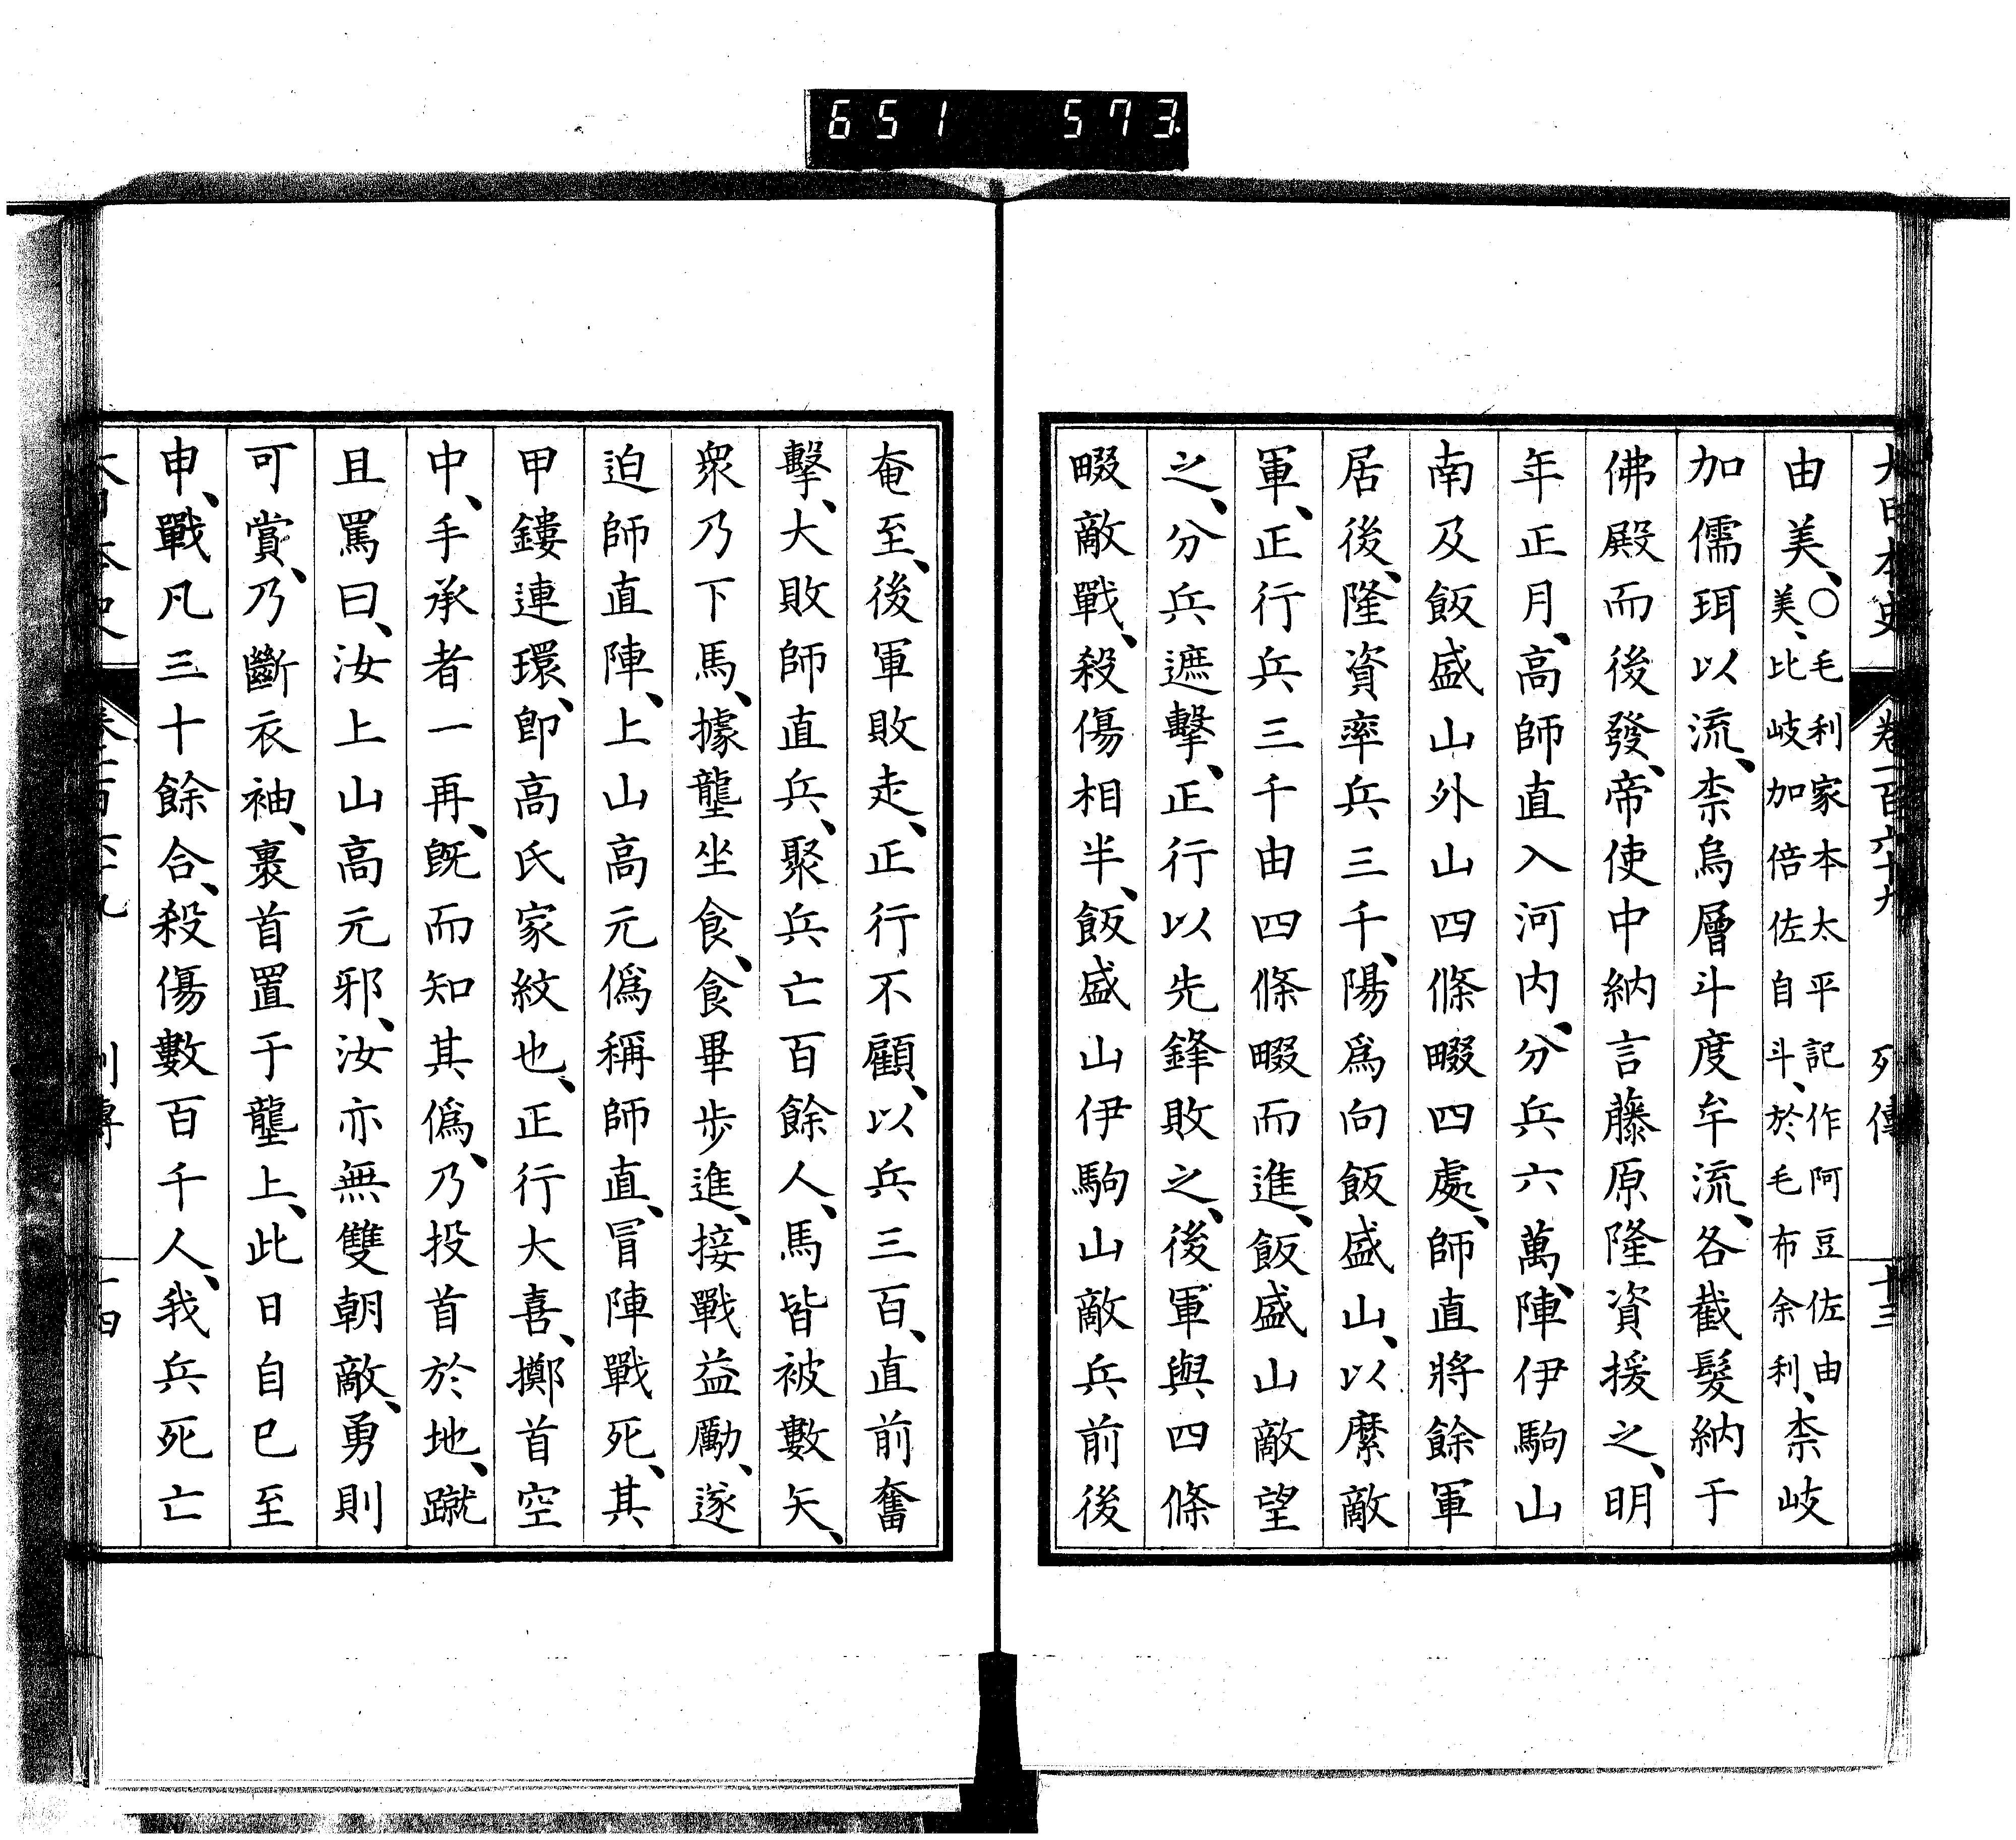 651 573
大日本史 卷一百六十九 列傳 十三
由美、○毛利家本太平記作阿豆佐由美、比岐加倍佐自斗、於毛布余利、柰岐
加儒珥以流、柰烏層斗度牟流、各截髮納于
佛殿而後發、帝使中納言藤原隆資援之、明
年正月、高師直入河内、分兵六萬、陣伊駒山
南及飯盛山外山四條畷四處、師直將餘軍
居後、隆資率兵三千、陽爲向飯盛山、以縻敵
軍、正行兵三千由四條畷而進、飯盛山敵望
之、分兵遮擊、正行以先鋒敗之、後軍與四條
畷敵戰、殺傷相半、飯盛山伊駒山敵兵前後
奄至、後軍敗走、正行不顧、以兵三百、直前奮
擊、大敗師直兵、聚兵亡百餘人、馬皆被數矢、
衆乃下馬、據壟坐食、食畢步進、接戰益勵、遂
迫師直陣、上山高元僞稱師直、冒陣戰死、其
甲鏤連環、卽高氏家紋也、正行大喜、擲首空
中、手承者一再、既而知其僞、乃投首於地、蹴
且罵曰、汝上山高元邪、汝亦無雙朝敵、勇則
可賞、乃斷衣袖、裹首置于壟上、此日自巳至
申、戰凡三十餘合、殺傷數百千人、我兵死亡